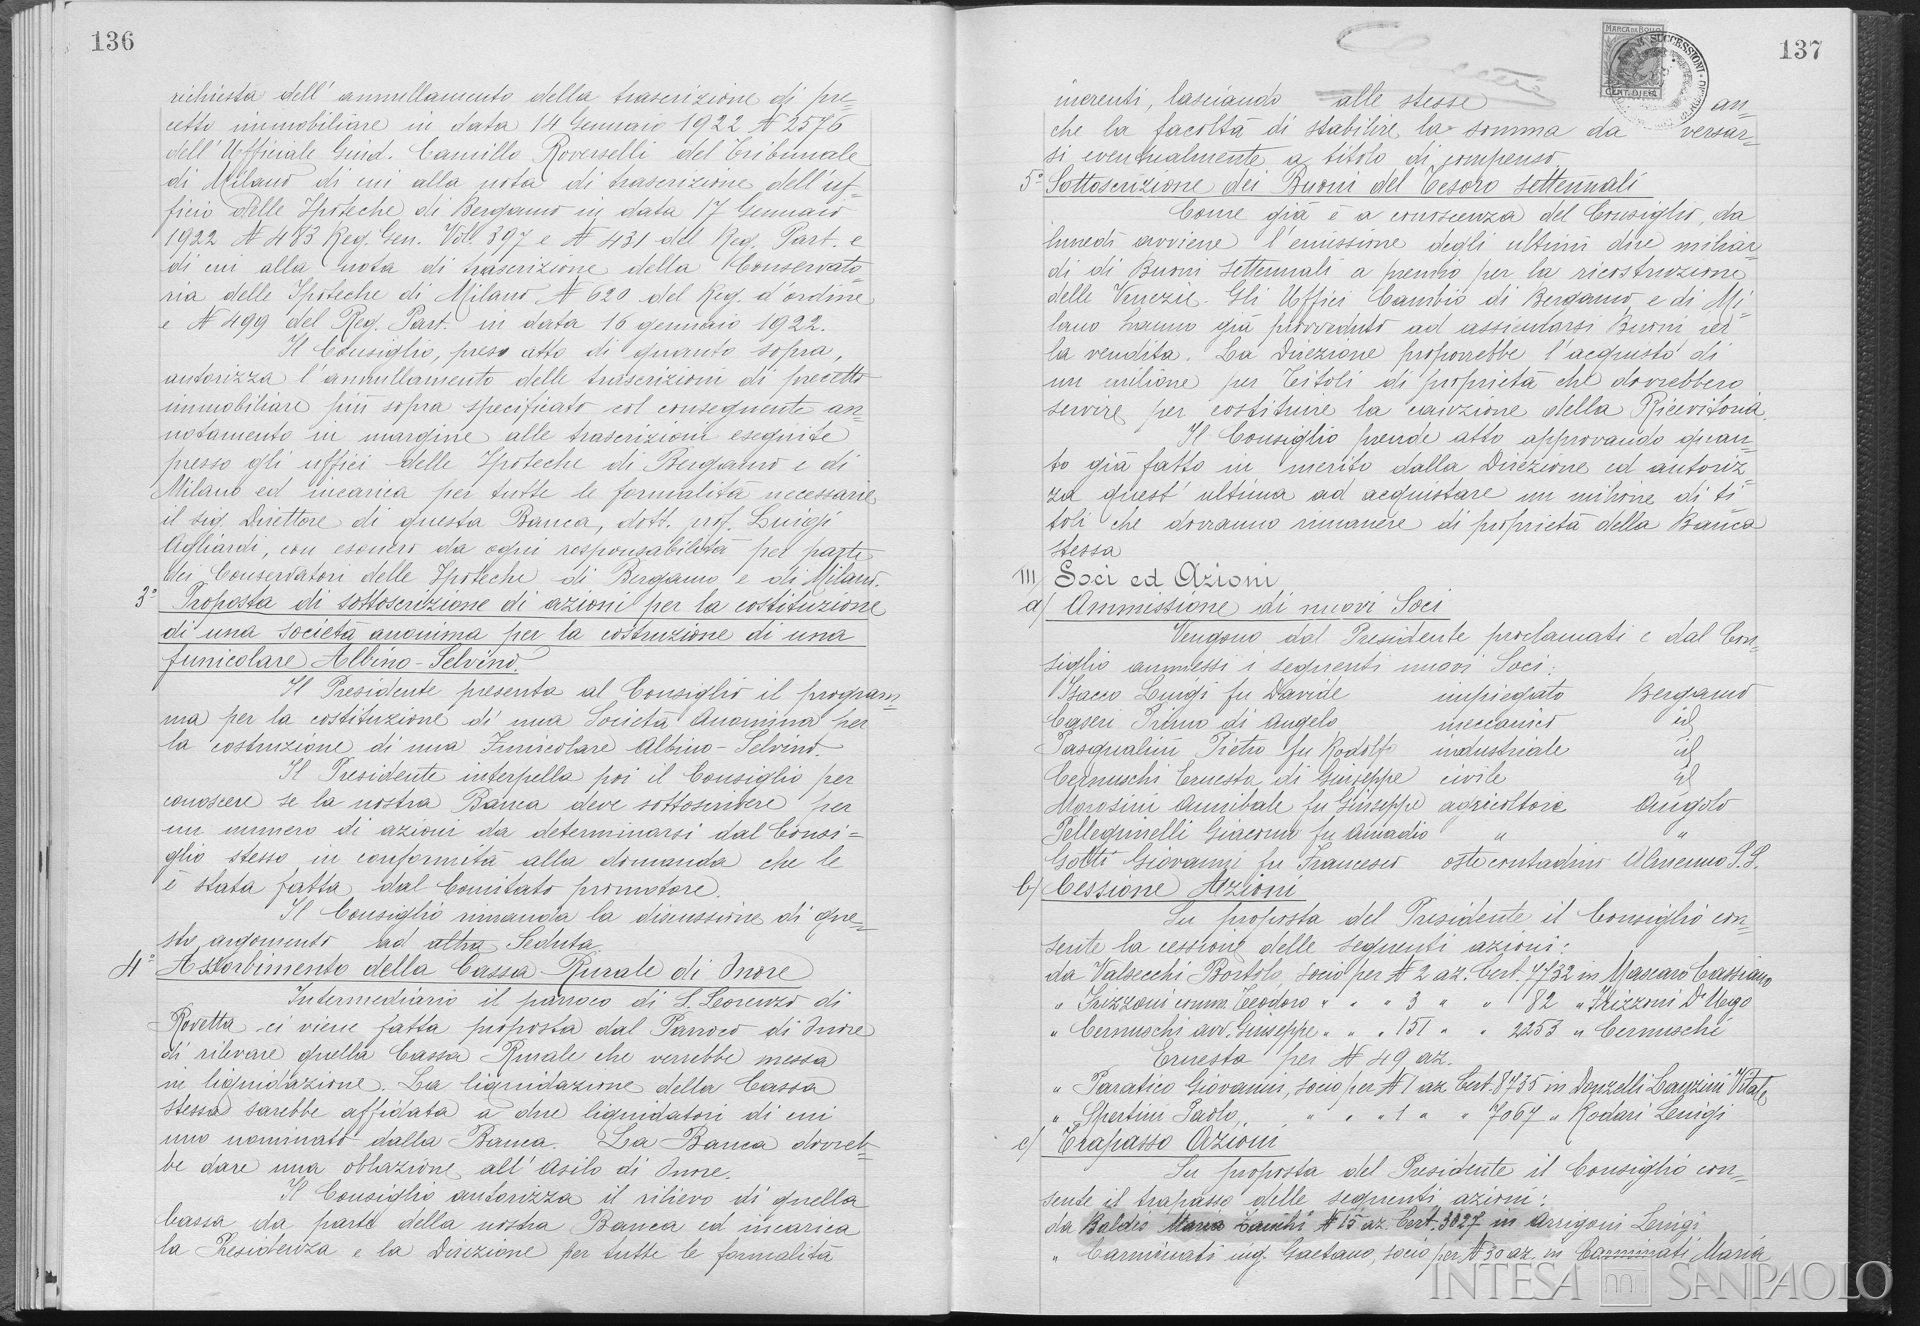 136
richiesta dell'annullamento della trascrizione di pre=
cetto immobiliare in data 14 Gennaio 1922 N 2576
dell'Ufficiale Giud. Camillo Roverselli del Tribunale
di Milano di cui alla nota di trascrizione dell'uf=
ficio delle Ipoteche di Bergamo in data 17 Gennaio
1922 N 483 Reg. Gen. Vol. 397 e N 431 del Reg. Part. e
di cui alla nota di trascrizione della Conservato=
ria delle Ipoteche di Milano N 620 del Reg. d'ordine
e N 499 del Reg. Part. in data 16 gennaio 1922.
Il Consiglio, preso atto di quanto sopra,
autorizza l'annullamento delle trascrizioni di precetto
immobiliare più sopra specificato col conseguente an=
notamento in margine alle trascrizioni eseguite
presso gli uffici delle Ipoteche di Bergamo e di
Milano ed incarica per tutte le formalità necessarie
il sig. Direttore di questa Banca, dott. prof. Luigi
Agliardi, con esonero da ogni responsabilità per parte
dei Conservatori delle Ipoteche di Bergamo e di Milano.
3° Proposta di sottoscrizione di azioni per la costituzione
di una società anonima per la costruzione di una
funicolare Albino-Selvino.
Il Presidente presenta al Consiglio il program=
ma per la costituzione di una Società Anonima per
la costruzione di una Funicolare Albino-Selvino.
Il Presidente interpella poi il Consiglio per
conoscere se la nostra Banca deve sottoscrivere per
un numero di azioni da determinarsi dal Consi=
glio stesso in conformità alla domanda che le
è stata fatta dal Comitato promotore.
Il Consiglio rimanda la discussione di que=
sto argomento ad altra Seduta.
4° Assorbimento della Cassa Rurale di Onore
Intermediario il parroco di S. Lorenzo di
Rovetta ci viene fatta proposta dal Parroco di Onore
di rilevare quella Cassa Rurale che verrebbe messa
in liquidazione. La liquidazione della Cassa
stessa sarebbe affidata a due liquidatori di cui
uno nominato dalla Banca. La Banca dovreb=
be dare una oblazione all'Asilo di Onore.
Il Consiglio autorizza il rilievo di quella
Cassa da parte della nostra Banca ed incarica
la Presidenza e la Direzione per tutte le formalità
137
MARCA DA BOLLO
CENT. DIECI
SUCCESSIONI
inerenti, lasciando alle stesse an=
che la facoltà di stabilire la somma da versar=
si eventualmente a titolo di compenso.
5° Sottoscrizione dei Buoni del Tesoro settennali
Come già è a conoscenza del Consiglio, da
lunedì avviene l'emissione degli ultimi due miliar=
di di Buoni settennali a premio per la ricostruzione
delle Venezie. Gli Uffici Cambio di Bergamo e di Mi=
lano hanno già provveduto ad assicurarsi Buoni per
la vendita. La Direzione proporrebbe l'acquisto di
un milione per Titoli di proprietà che dovrebbero
servire per costituire la cauzione della Ricevitoria.
Il Consiglio prende atto approvando quan=
to già fatto in merito dalla Direzione ed autoriz=
za quest'ultima ad acquistare un milione di ti=
toli che dovranno rimanere di proprietà della Banca
stessa
III/ Soci ed Azioni
a/ Ammissione di nuovi Soci
Vengono dal Presidente proclamati e dal Con=
siglio ammessi i seguenti nuovi Soci:
Isacco Luigi fu Davide impiegato Bergamo
Caseri Primo di Angelo meccanico id
Pasqualini Pietro fu Rodolfo industriale id
Cernuschi Ernesta di Giuseppe civile id
Morosini Annibale fu Giuseppe agricoltore Angolo
Pellegrinelli Giacomo fu Amadio " "
Gotti Giovanni fu Francesco oste contadino Almenno S.S.
b/ Cessione Azioni
Su proposta del Presidente il Consiglio con=
sente la cessione delle seguenti azioni:
da Valsecchi Bortolo, socio per N 2 az. Cert. 7732 in Mascaro Cassiano
" Frizzoni comm. Teodoro " " " 3 " " 82 " Frizzoni Dr Ugo
" Cernuschi avv. Giuseppe " " " 151 " " 2253 " Cernuschi
Ernesta per N 49 az.
" Paratico Giovanni, socio per N 1 az Cert. 8735 in Donzelli Lanzini Vitale
" Spertini Paolo, " " " 1 " " 7067 " Rodari Luigi
c/ Trapasso Azioni
Su proposta del Presidente il Consiglio con=
sente il trapasso delle seguenti azioni:
da Baldis Maria N 15 az. Cert. 3027 in Arrigoni Luigi
" Carminati ing. Gaetano, socio per N 30 az. in Carminati Maria
INTESA SANPAOLO